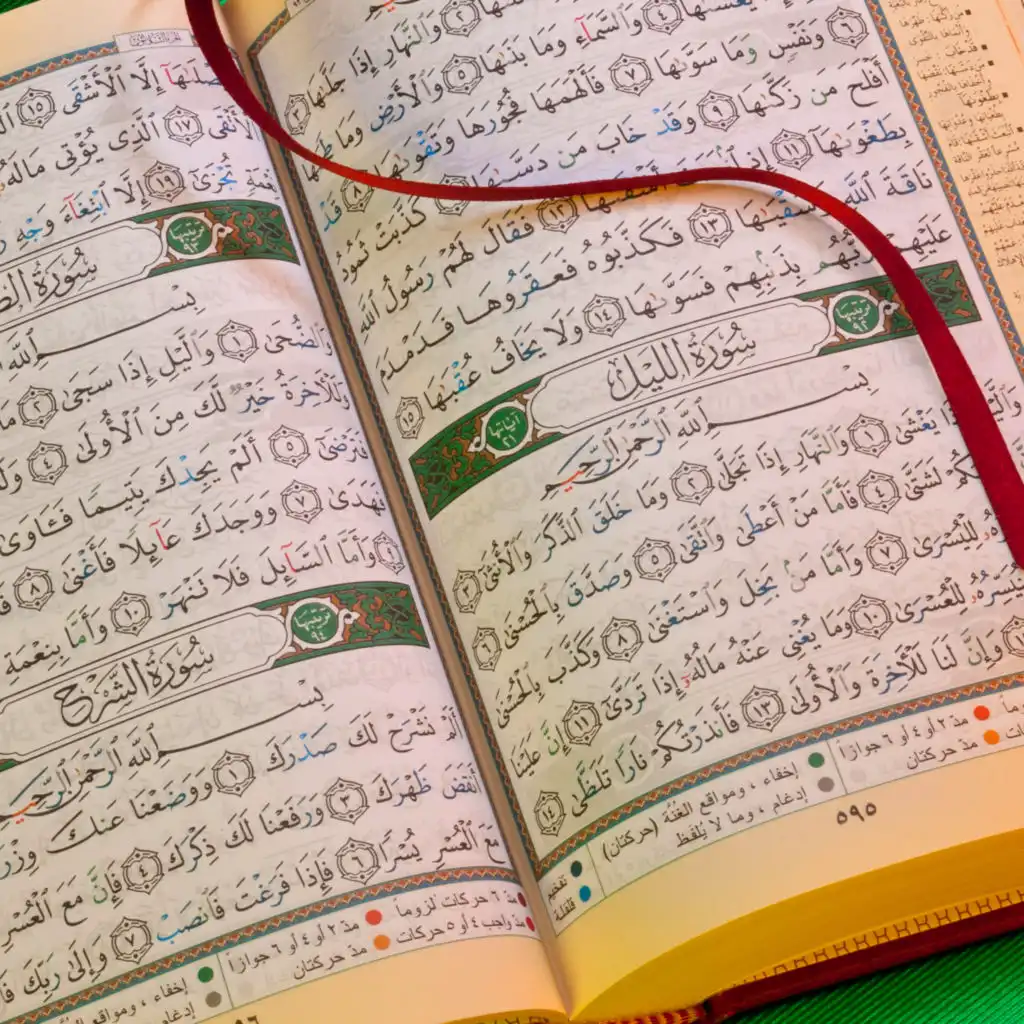 وَٱلنَّهَارِ إِذَا جَلَّىٰهَا ٣
يَغْشَىٰهَا ٤ وَٱلسَّمَآءِ وَمَا بَنَىٰهَا ٥ وَٱلْأَرْضِ وَمَا طَحَىٰهَا
٦ وَنَفْسٍ وَمَا سَوَّىٰهَا ٧ فَأَلْهَمَهَا فُجُورَهَا وَتَقْوَىٰهَا ٨ قَدْ
أَفْلَحَ مَن زَكَّىٰهَا ٩ وَقَدْ خَابَ مَن دَسَّىٰهَا كَذَّبَتْ ثَمُودُ
بِطَغْوَىٰهَآ ١١ إِذِ ٱنۢبَعَثَ أَشْقَىٰهَا ١٢ فَقَالَ لَهُمْ رَسُولُ ٱللَّهِ
نَاقَةَ ٱللَّهِ وَسُقْيَٰهَا ١٣ فَكَذَّبُوهُ فَعَقَرُوهَا فَدَمْدَمَ
عَلَيْهِمْ رَبُّهُم بِذَنۢبِهِمْ فَسَوَّىٰهَا ١٤ وَلَا يَخَافُ عُقْبَٰهَا ١٥
ترتيبها ٩٢ سُورَةُ اللَّيْلِ آياتها ٢١
بِسْمِ ٱللَّهِ ٱلرَّحْمَٰنِ ٱلرَّحِيمِ
وَٱلَّيْلِ إِذَا يَغْشَىٰ ١ وَٱلنَّهَارِ إِذَا تَجَلَّىٰ ٢ وَمَا خَلَقَ ٱلذَّكَرَ وَٱلْأُنثَىٰٓ ٣
لَشَتَّىٰ ٤ فَأَمَّا مَنْ أَعْطَىٰ وَٱتَّقَىٰ ٥ وَصَدَّقَ بِٱلْحُسْنَىٰ ٦
لِلْيُسْرَىٰ ٧ وَأَمَّا مَنۢ بَخِلَ وَٱسْتَغْنَىٰ ٨ وَكَذَّبَ بِٱلْحُسْنَىٰ
فَسَنُيَسِّرُهُۥ لِلْعُسْرَىٰ ١٠ وَمَا يُغْنِى عَنْهُ مَالُهُۥٓ إِذَا تَرَدَّىٰٓ ١١ إِنَّ عَلَيْنَا
وَإِنَّ لَنَا لَلْـَٔاخِرَةَ وَٱلْأُولَىٰ ١٣ فَأَنذَرْتُكُمْ نَارًا تَلَظَّىٰ ١٤
مدّ ٢ أو ٤ أو ٦ جوازاً إخفاء ، ومواقع الغُنَّة (حركتان) تفخيم
مدّ حركتان إدغام ، وما لا يُلفَظ قلقلة
٥٩٥
يَصْلَىٰهَآ إِلَّا ٱلْأَشْقَى ١٥
ٱلْأَتْقَى ١٧ ٱلَّذِى يُؤْتِى مَالَهُۥ
نِّعْمَةٍ تُجْزَىٰٓ ١٩ إِلَّا ٱبْتِغَآءَ وَجْهِ
ترتيبها ٩٣ سُورَةُ
بِسْمِ ٱللَّهِ
وَٱلضُّحَىٰ ١ وَٱلَّيْلِ إِذَا سَجَىٰ ٢ مَا
وَلَلْـَٔاخِرَةُ خَيْرٌ لَّكَ مِنَ ٱلْأُولَىٰ ٤
فَتَرْضَىٰٓ ٥ أَلَمْ يَجِدْكَ يَتِيمًا فَـَٔاوَىٰ
فَهَدَىٰ ٧ وَوَجَدَكَ عَآئِلًا فَأَغْنَىٰ ٨
٩ وَأَمَّا ٱلسَّآئِلَ فَلَا تَنْهَرْ ١٠ وَأَمَّا بِنِعْمَةِ
ترتيبها ٩٤ سُورَةُ الشَّرْحِ
بِسْمِ ٱللَّهِ ٱلرَّحْمَٰنِ ٱلرَّحِيمِ
أَلَمْ نَشْرَحْ لَكَ صَدْرَكَ ١ وَوَضَعْنَا عَنكَ وِزْرَكَ
أَنقَضَ ظَهْرَكَ ٣ وَرَفَعْنَا لَكَ ذِكْرَكَ ٤ فَإِنَّ مَعَ ٱلْعُسْرِ
مَعَ ٱلْعُسْرِ يُسْرًا ٦ فَإِذَا فَرَغْتَ فَٱنصَبْ ٧ وَإِلَىٰ رَبِّكَ
مدّ ٦ حركات لزوماً مدّ ٢ أو ٤ أو ٦ جوازاً إخفاء ، ومواقع
مدّ واجب ٤ أو ٥ حركات مدّ حركتان إدغام